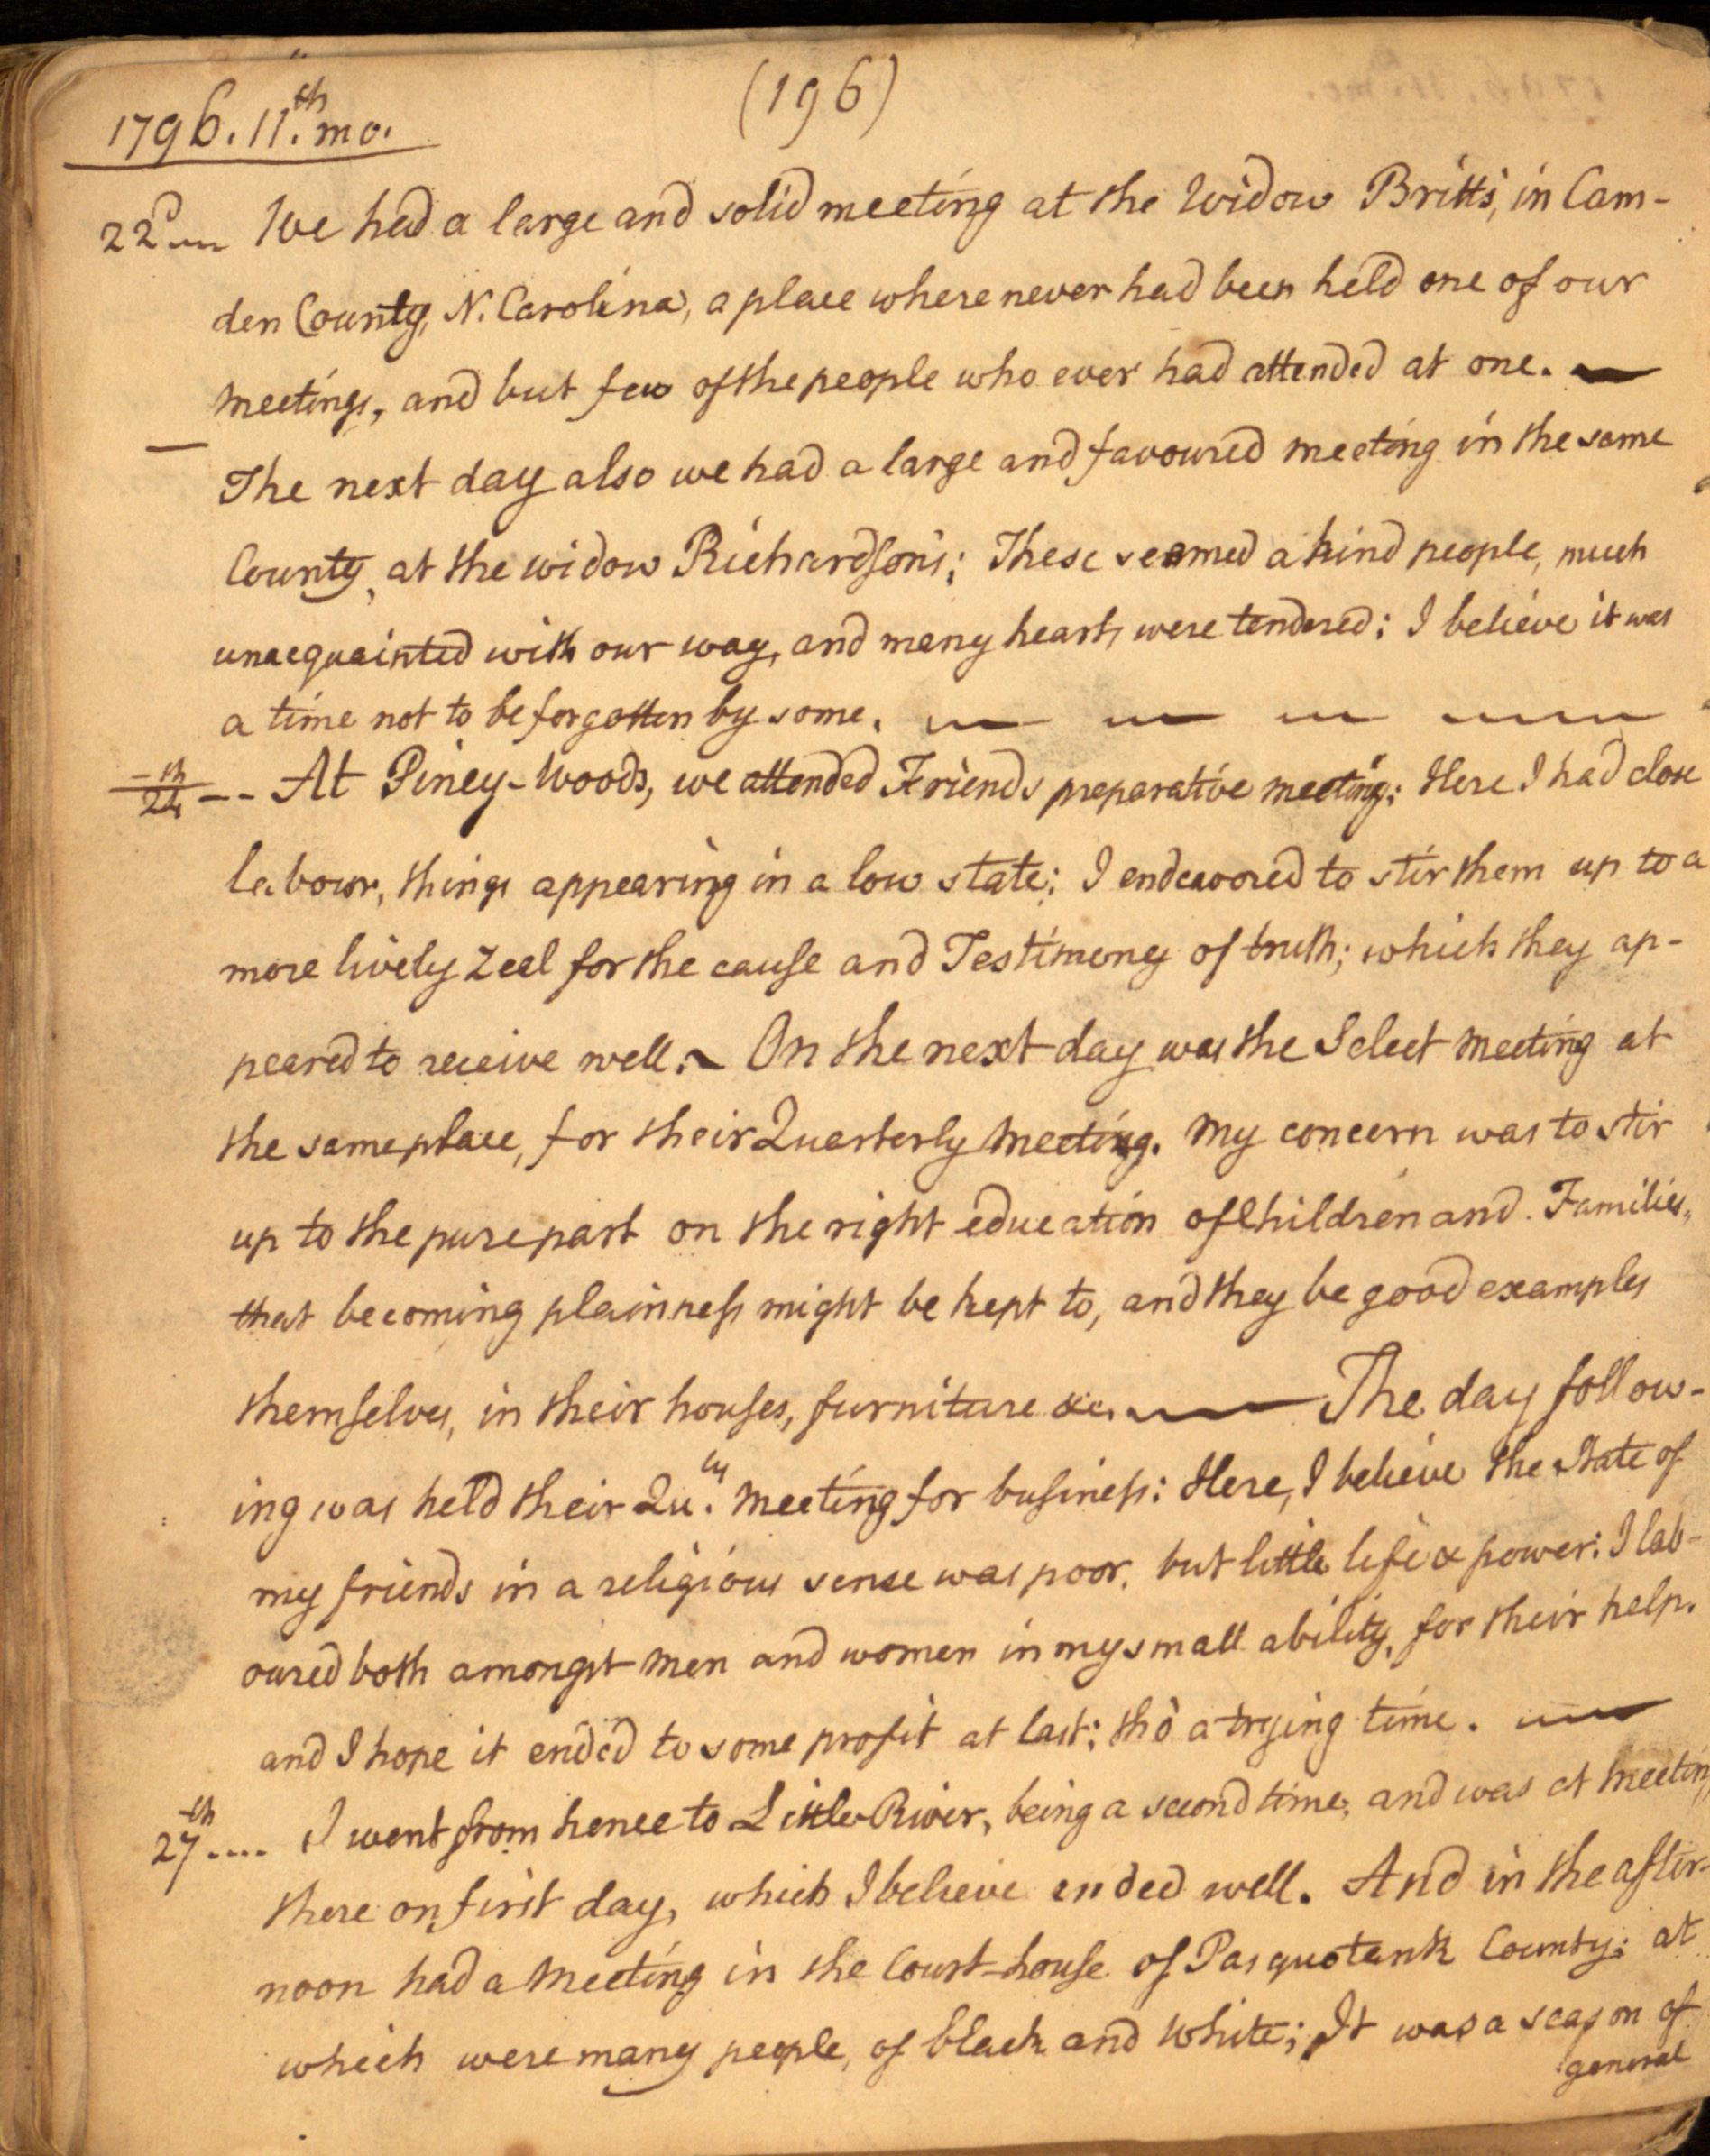 (196)
1796. 11.th mo.
22d We had a large and solid meeting at the Widow Britts, in Cam-
den County, N. Carolina, a place where never had been held one of our
meetings, and but few of the people who ever had attended at one. —
— The next day also we had a large and favoured meeting in the same
County, at the widow Richardson's; These seemed a kind people, much
unacquainted with our way, and many hearts were tendered: I believe it was
a time not to be forgotten by some. — — — —
24th -- At Piney-Woods, we attended Friends preparative meeting: Here I had close
labour, things appearing in a low state; I endeavored to stir them up to a
more lively Zeal for the cause and Testimony of truth; which they ap-
peared to receive well. ~ On the next day was the Select meeting at
the same place, for their Quarterly Meeting. My concern was to stir
up to the pure part on the right education of Children and Families,
that becoming plainness might be kept to, and they be good examples
themselves, in their houses, furniture &c. — The day follow-
ing was held their Qu.ly meeting for business: Here, I believe the state of
my friends in a religious sense was poor, but little life & power: I lab-
oured both amongst men and women in my small ability, for their help.
and I hope it ended to some profit at last; tho' a trying time. —
27th .... I went from hence to Little River, being a second time, and was at meeting
there on first day, which I believe ended well. And in the after-
noon had a meeting in the Court-house of Pasquotank County; at
which were many people, of black and white; It was a season of
general